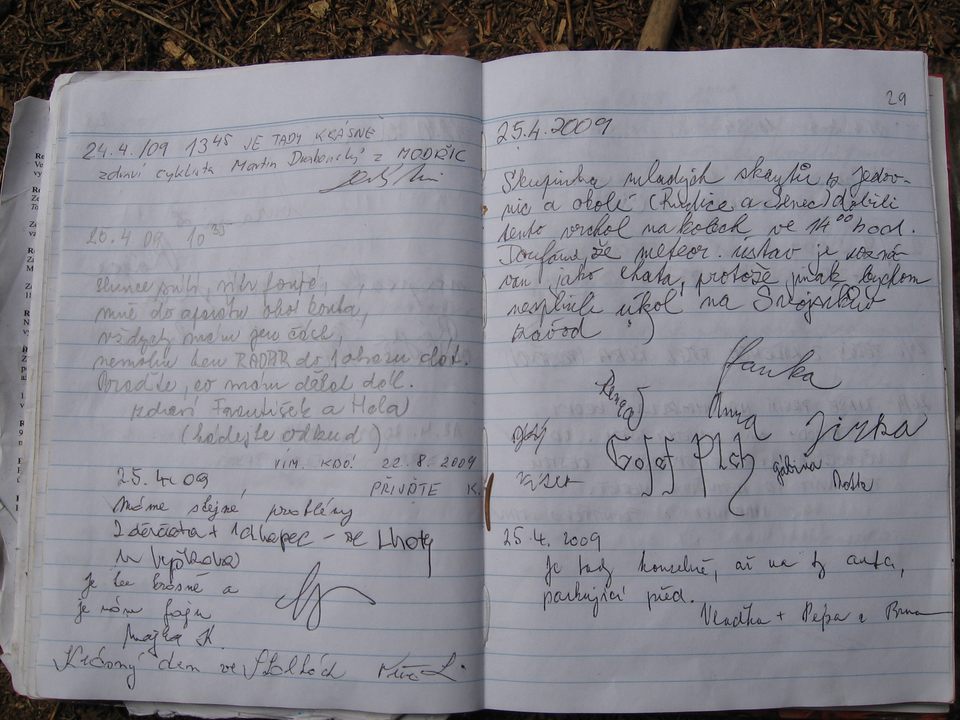 24.4./09 13⁴⁵ JE TADY KRÁSNĚ
zdraví cyklista Martin z MODŘIC
25.4.09 10³⁵
slunce svítí, vítr fouká,
mně do aparátu okolí kouká,
vždycky mám jen část,
nemohu ten RADAR do 1 obrazu dát.
Poraďte, co mám dělat dál.
zdraví František a
(hádejte odkud)
VÍM. KDO! 22.8.2009
PŘIVĎTE K.
25.4.09
Máme stejné problémy
2 děvčata + 1 chlapec – ze Lhoty
u Vyškova
je tu krásně a
je nám fajn
Majka K.
Krásný den ve
29
25.4.2009
Skupinka mladých skautů z Jedov-
nic a okolí (Rudice a Senec) dobili
tento vrchol na kolech ve 14⁰⁰ hod.
Doufáme, že meteor. ústav je uzná-
ván jako chata, protože jinak bychom
nesplnili úkol na Svojsíkův
závod :)
Hanka
Anna
Jirka
Gosef Plch
gábina
25.4. 2009
Je tady kouzelně, až na ty auta,
parkující před.
Vlaďka + Pepa z Brna